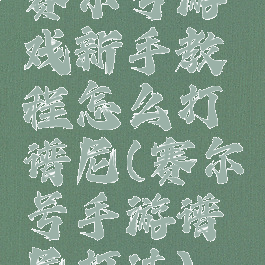 赛尔号游
戏新手教
程怎么打
谱尼(赛尔
号手游谱
尼打法)